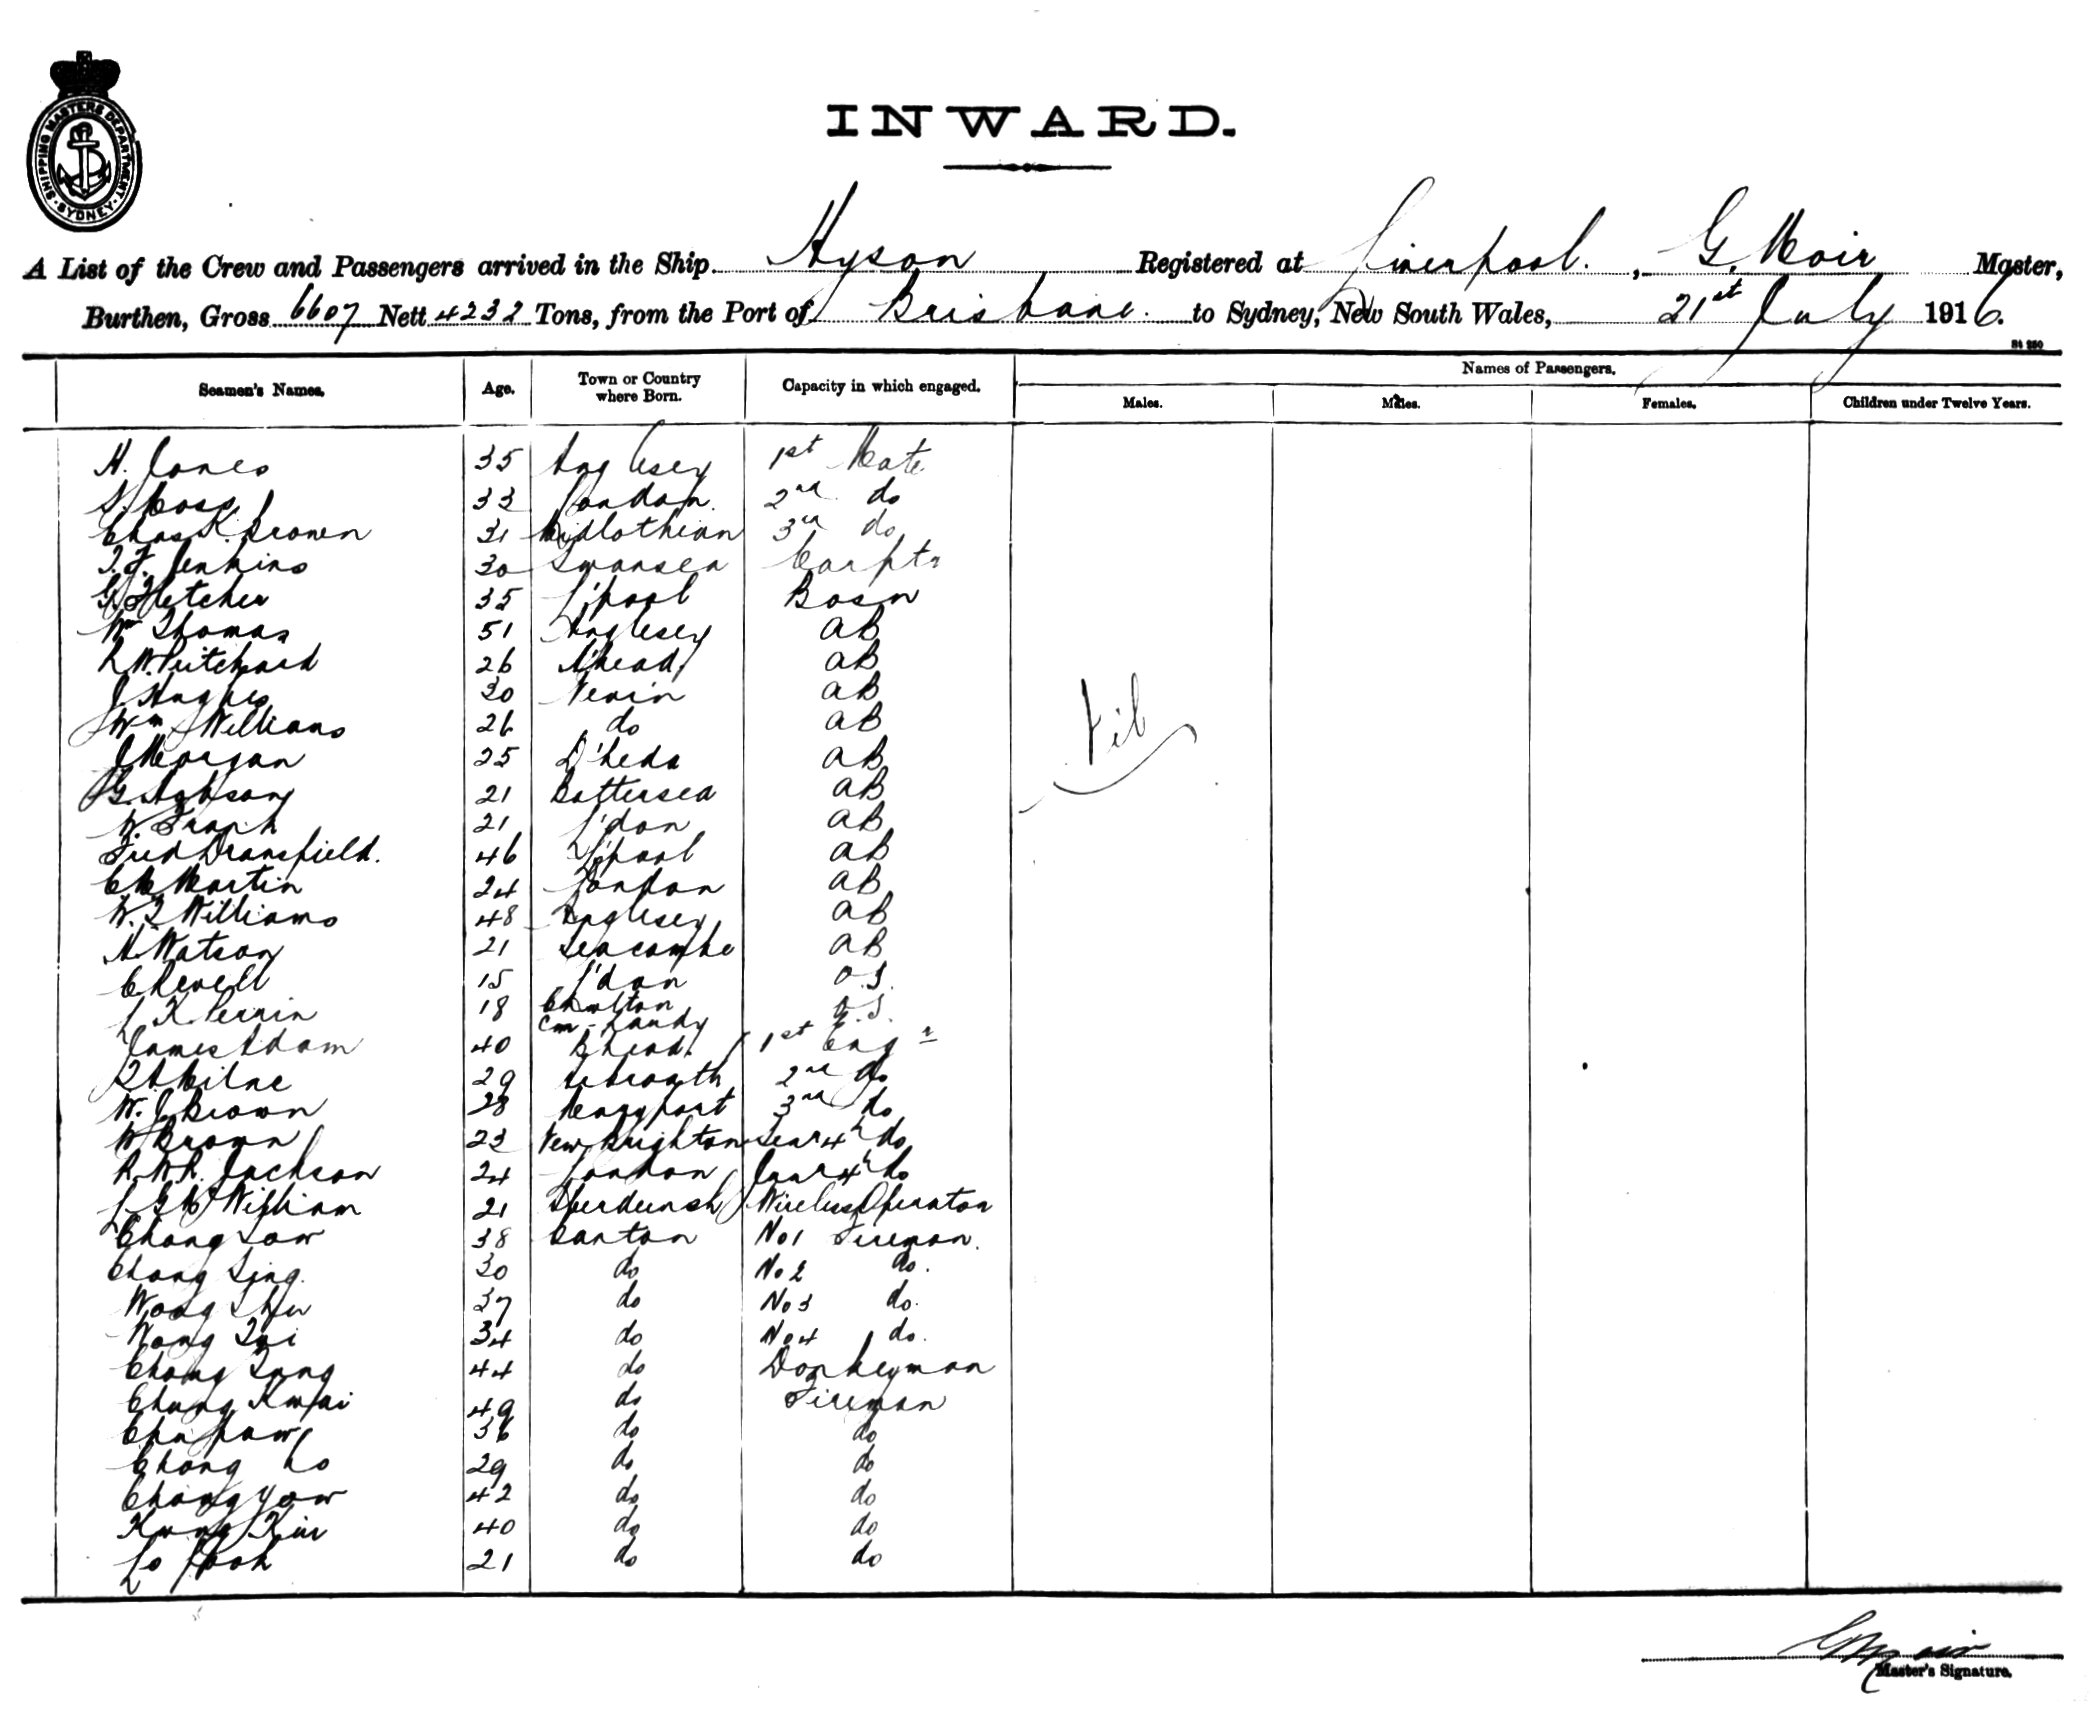 SHIPPING MASTERS DEPARTMENT
SYDNEY
INWARD.
A List of the Crew and Passengers arrived in the Ship Hyson Registered at Liverpool. , G. Moir Master,
Burthen, Gross 6607 Nett 4232 Tons, from the Port of Brisbane. to Sydney, New South Wales, 21st July 1916.
Seamen's Names. Age. Town or Country where Born. Capacity in which engaged. Names of Passengers.
Males. Males. Females. Children under Twelve Years.
H. Jones 35 Anglesey 1st Mate
33 London. 2nd do
Chas K. Brown 31 Midlothian 3rd do
T. F. Jenkins 30 Swansea Carptr
G. Fletcher 35 L'pool Bosn
Wm Thomas 51 Anglesey AB
R W. Pritchard 26 AB
J Hughes 30 Nevin AB
Wm Williams 26 do AB
Nil
J Morgan 25 AB
G. 21 Battersea AB
W. 21 L'don AB
Fred Dransfield. 46 L'pool AB
C Martin 24 London AB
W. T Williams 48 Anglesey AB
H Watson 21 Seacombe AB
C Revell 15 L'don O.S.
L K Perrin 18 Chorlton O.S.
cm - hardy
James Adam 40 B'head. 1st Engr
Milne 29 Arbroath 2nd do
W. J Brown 28 Maryport 3rd do
W Brown 23 New Brighton Senr 4th do
R. W. R. Jackson 24 London Junr 4th do
L. G. McWilliam 21 Aberdeensh Wireless Operator
Chong Sow 38 Canton No 1 Fireman.
Chong Sing. 30 do No 2 do.
Wong Shu 37 do No 3 do.
Wong 34 do No 4 do.
Chong 44 do Donkeyman
Chung Kwai 49 do Fireman
36 do do
Chong Lo 29 do do
Chong Yow 42 do do
Kwong 40 do do
Lo 21 do do
G Moir
Master's Signature.